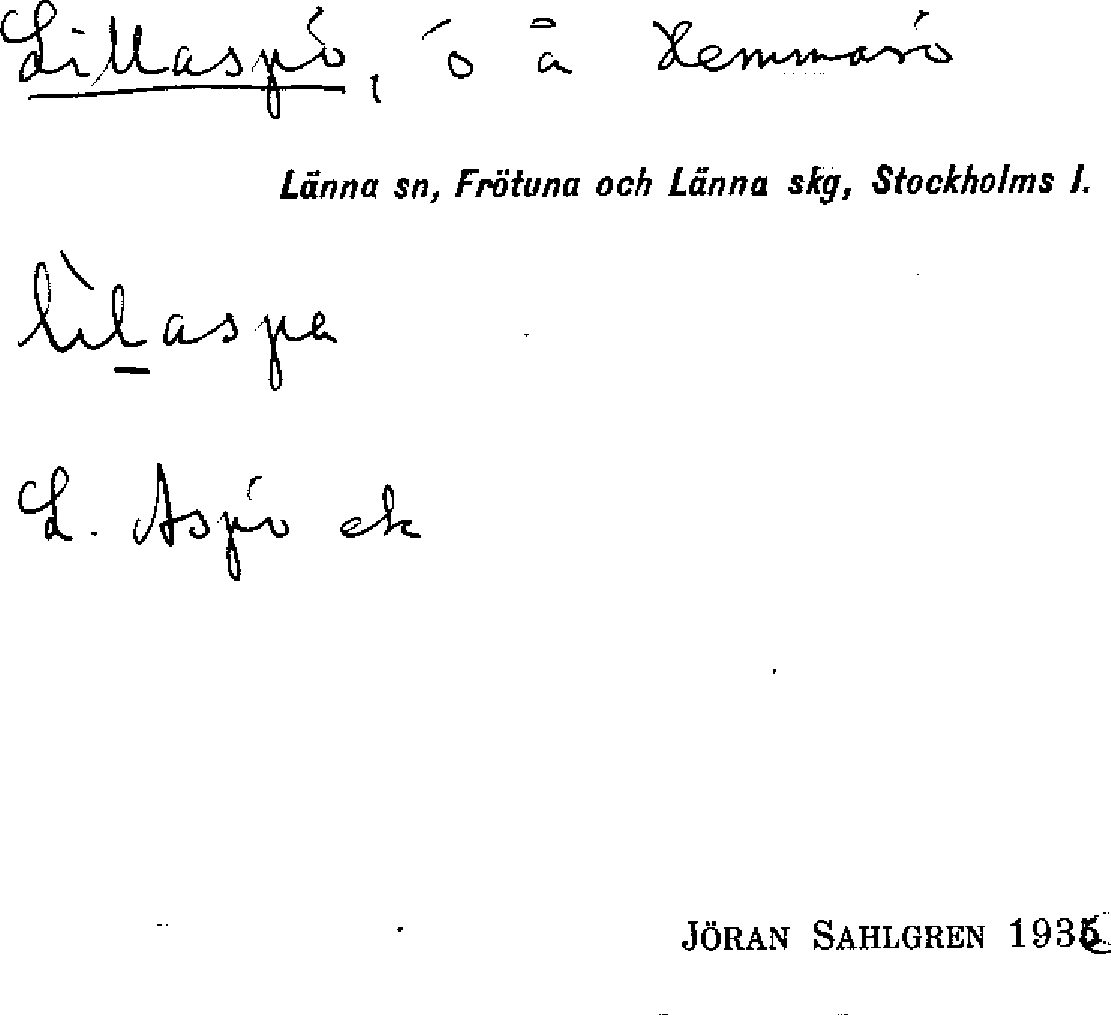 Lillaspö, ö å Hemmarö
Länna sn, Frötuna och Länna skg, Stockholms l.
lìlaspa
L. Aspö ek
JÖRAN SAHLGREN 1936